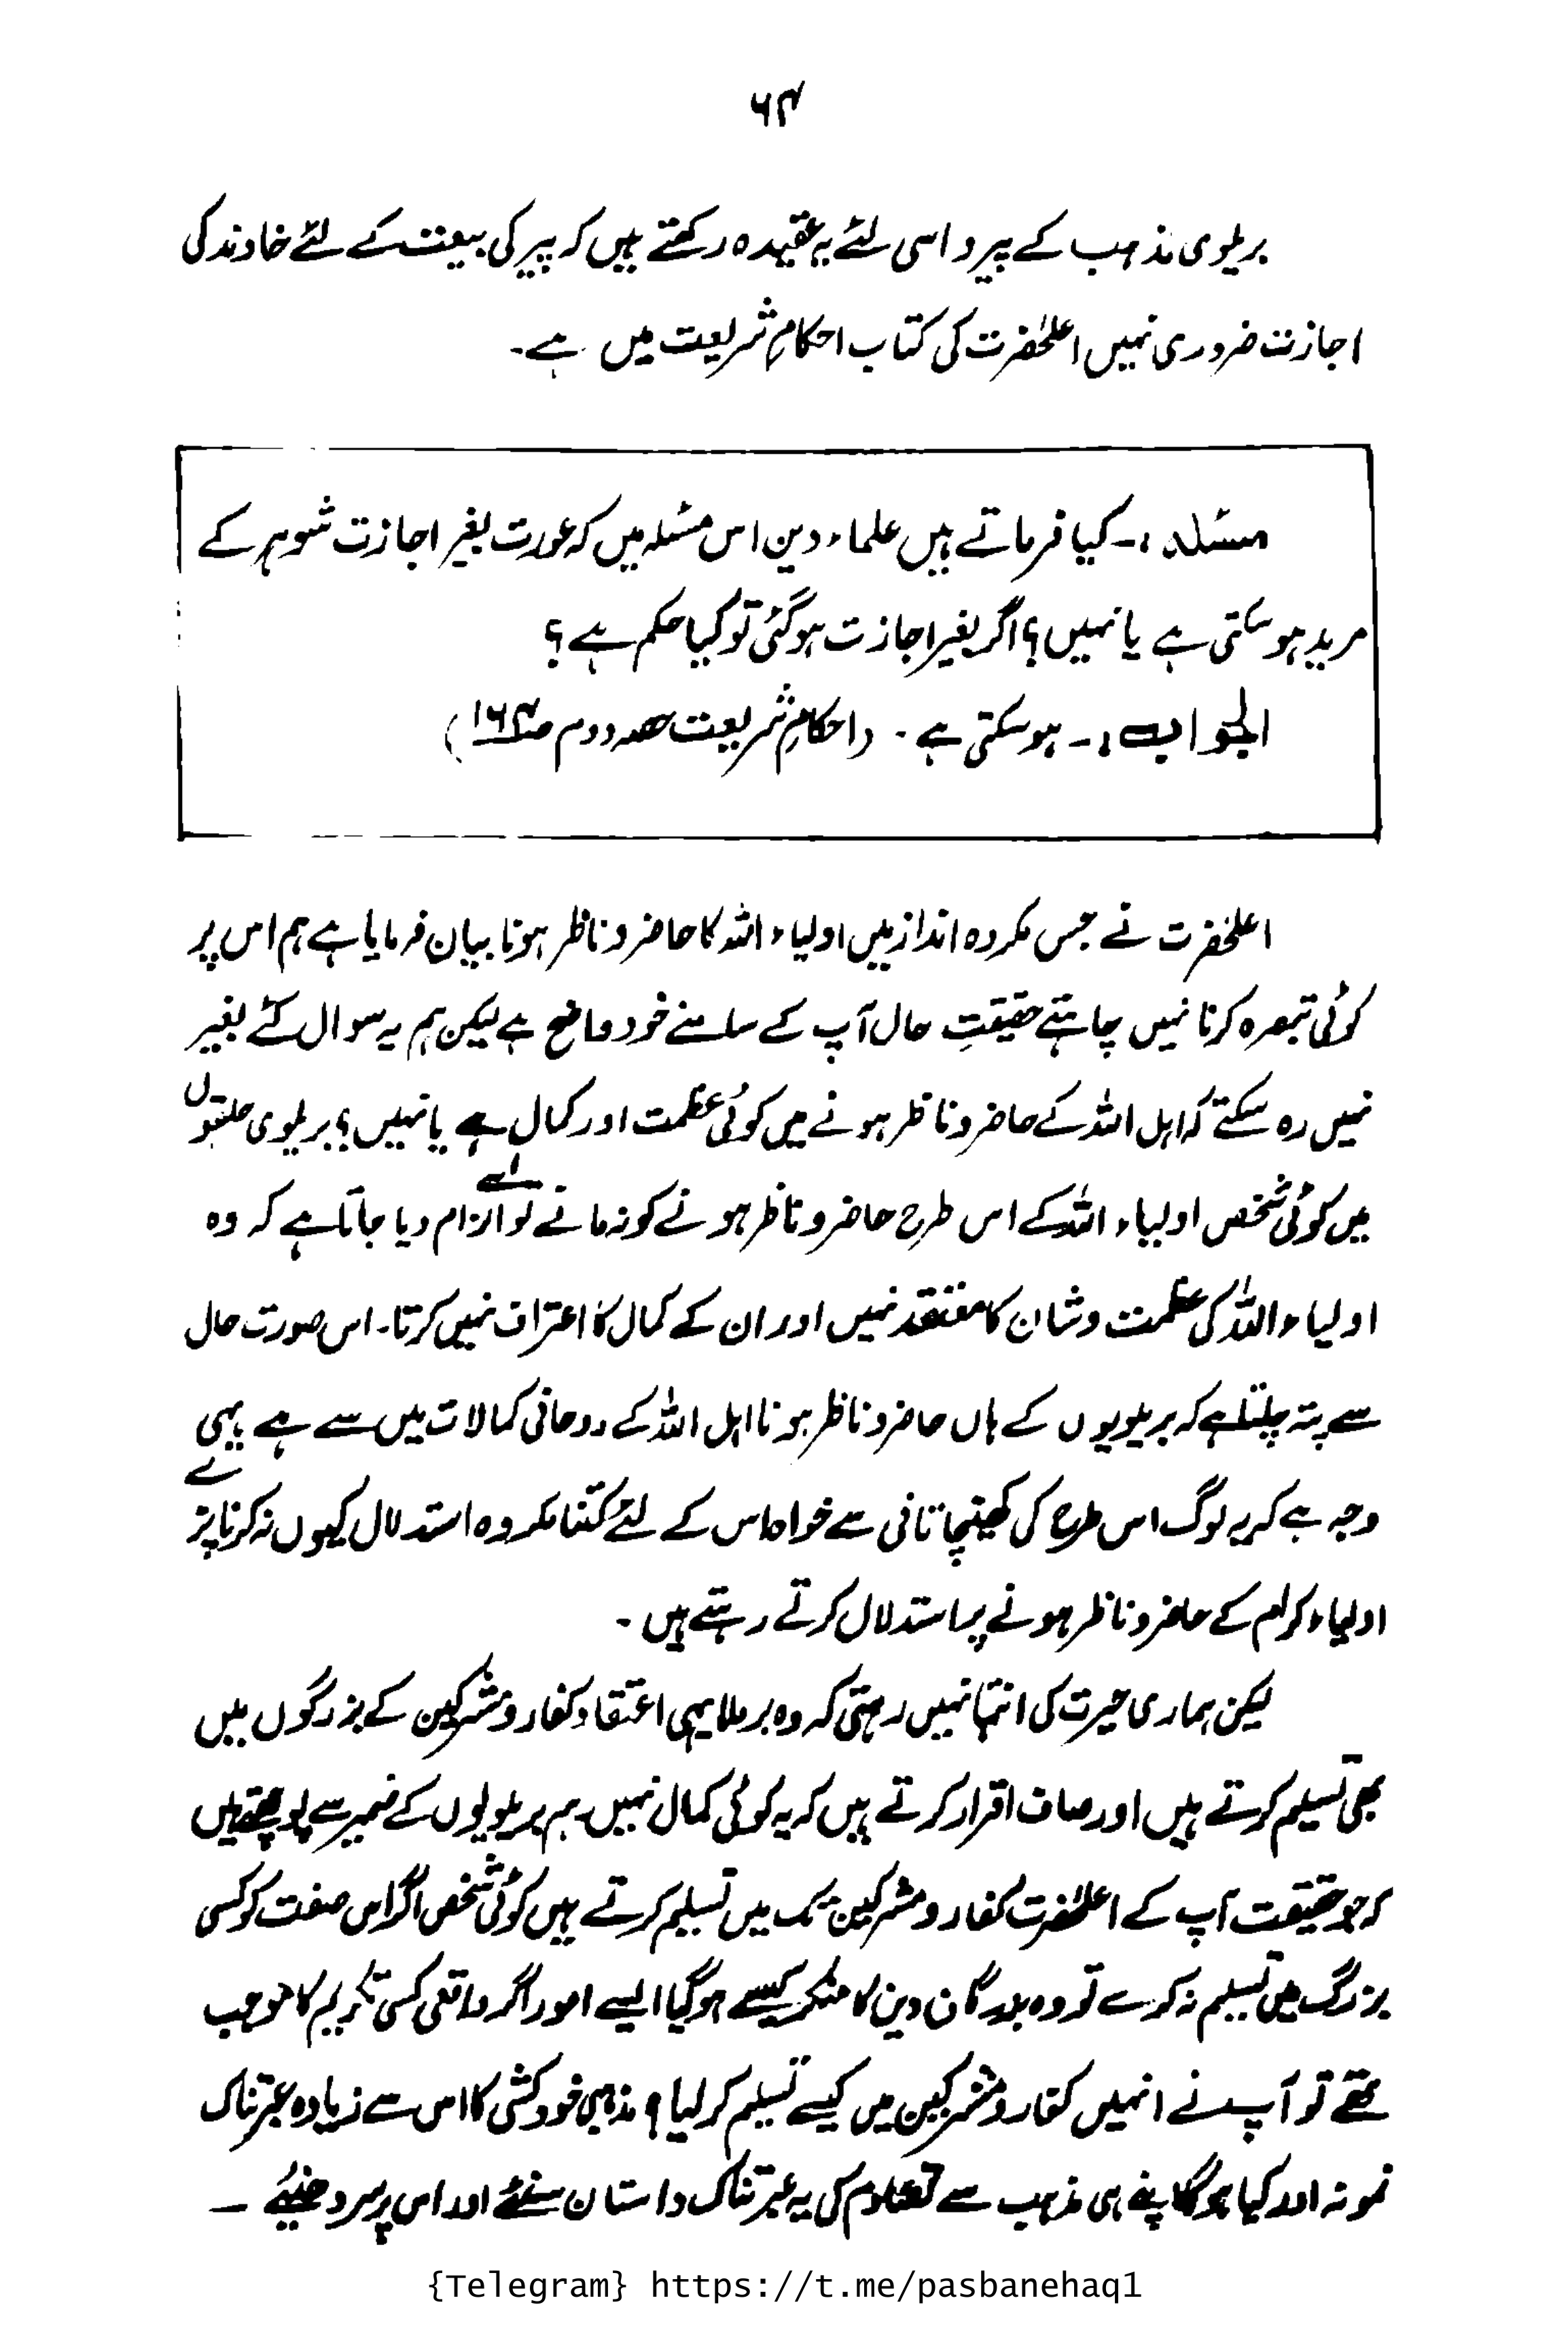 ۶۴
بریلوی مذہب کے پیرو اسی لئے یہ عقیدہ رکھتے ہیں کہ پیر کی بیعت کے لئے خاوند کی
اجازت ضروری نہیں اعلٰحضرت کی کتاب احکامِ شریعت میں ہے۔
مسئلہ :۔ کیا فرماتے ہیں علماء دین اس مسئلہ میں کہ عورت بغیر اجازت شوہر کے
مرید ہو سکتی ہے یا نہیں؟ اگر بغیر اجازت ہو گئی تو کیا حکم ہے ؟
الجواب :۔ ہو سکتی ہے ۔ (احکامِ شریعت حصہ دوم ص۱۶۴)
اعلٰحضرت نے جس مکروہ انداز میں اولیاء اللہ کا حاضر و ناظر ہونا بیان فرمایا ہے ہم اس پر
کوئی تبصرہ کرنا نہیں چاہتے حقیقتِ حال آپ کے سامنے خود واضح ہے لیکن ہم یہ سوال کئے بغیر
نہیں رہ سکتے کہ اہل اللہ کے حاضر و ناظر ہونے میں کوئی عظمت اور کمال ہے یا نہیں؟ بریلوی حلقوں
میں کوئی شخص اولیاء اللہ کے اس طرح حاضر و ناظر ہونے کو نہ مانے تو اسے الزام دیا جاتا ہے کہ وہ
اولیاء اللہ کی عظمت و شان کا معتقد نہیں اور ان کے کمال کا اعتراف نہیں کرتا۔ اس صورت حال
سے پتہ چلتا ہے کہ بریلویوں کے ہاں حاضر و ناظر ہونا اہل اللہ کے روحانی کمالات میں سے ہے یہی
وجہ ہے کہ یہ لوگ اس طرح کی کھینچا تانی سے خواہ اس کے لئے کتنا مکروہ استدلال کیوں نہ کرنا پڑے
اولیاء کرام کے حاضر و ناظر ہونے پر استدلال کرتے رہتے ہیں ۔
لیکن ہماری حیرت کی انتہا نہیں رہتی کہ وہ برملا یہی اعتقاد کفار و مشرکین کے بزرگوں میں
بھی تسلیم کرتے ہیں اور صاف اقرار کرتے ہیں کہ یہ کوئی کمال نہیں۔ ہم بریلویوں کے ضمیر سے پوچھتے ہیں
کہ جو حقیقت آپ کے اعلٰحضرت کفار و مشرکین تک میں تسلیم کرتے ہیں کوئی شخص اگر اس صفت کو کسی
بزرگ میں تسلیم نہ کرے تو وہ بزرگان دین کا منکر کیسے ہو گیا ایسے امور اگر واقعی کسی تکریم کا موجب
تھے تو آپ نے انہیں کفار و مشرکین میں کیسے تسلیم کر لیا؟ مذہبی خودکشی کا اس سے زیادہ عبرتناک
نمونہ اور کیا ہوگا اپنے ہی مذہب سے تصادم کی یہ عبرتناک داستان سنئے اور اس پر سر دھنیئے ۔
{Telegram} https://t.me/pasbanehaq1